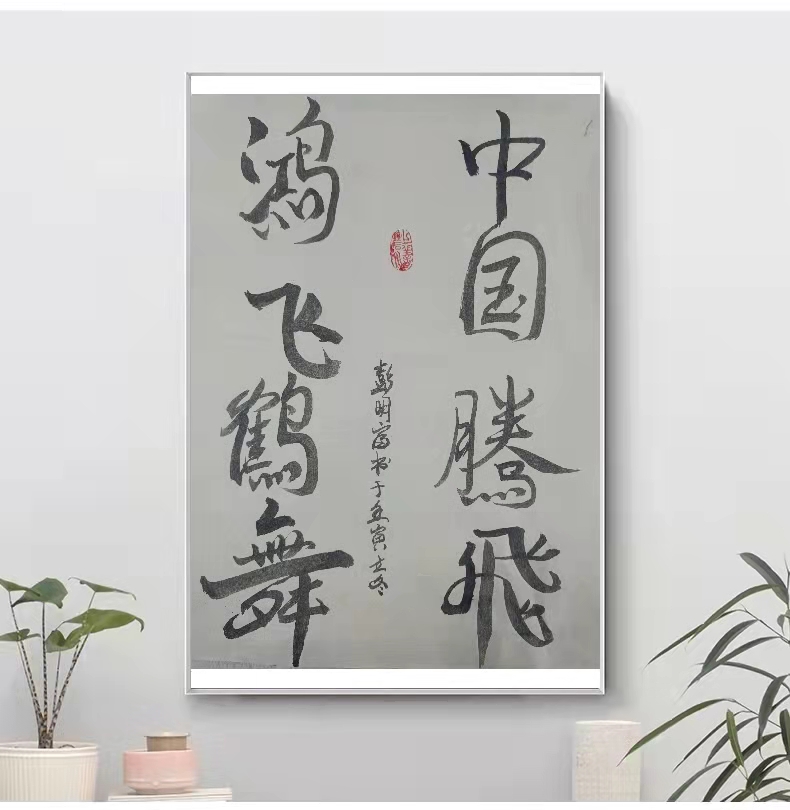 中国腾飛
鸿飞鹤舞
彭明富书于壬寅立冬